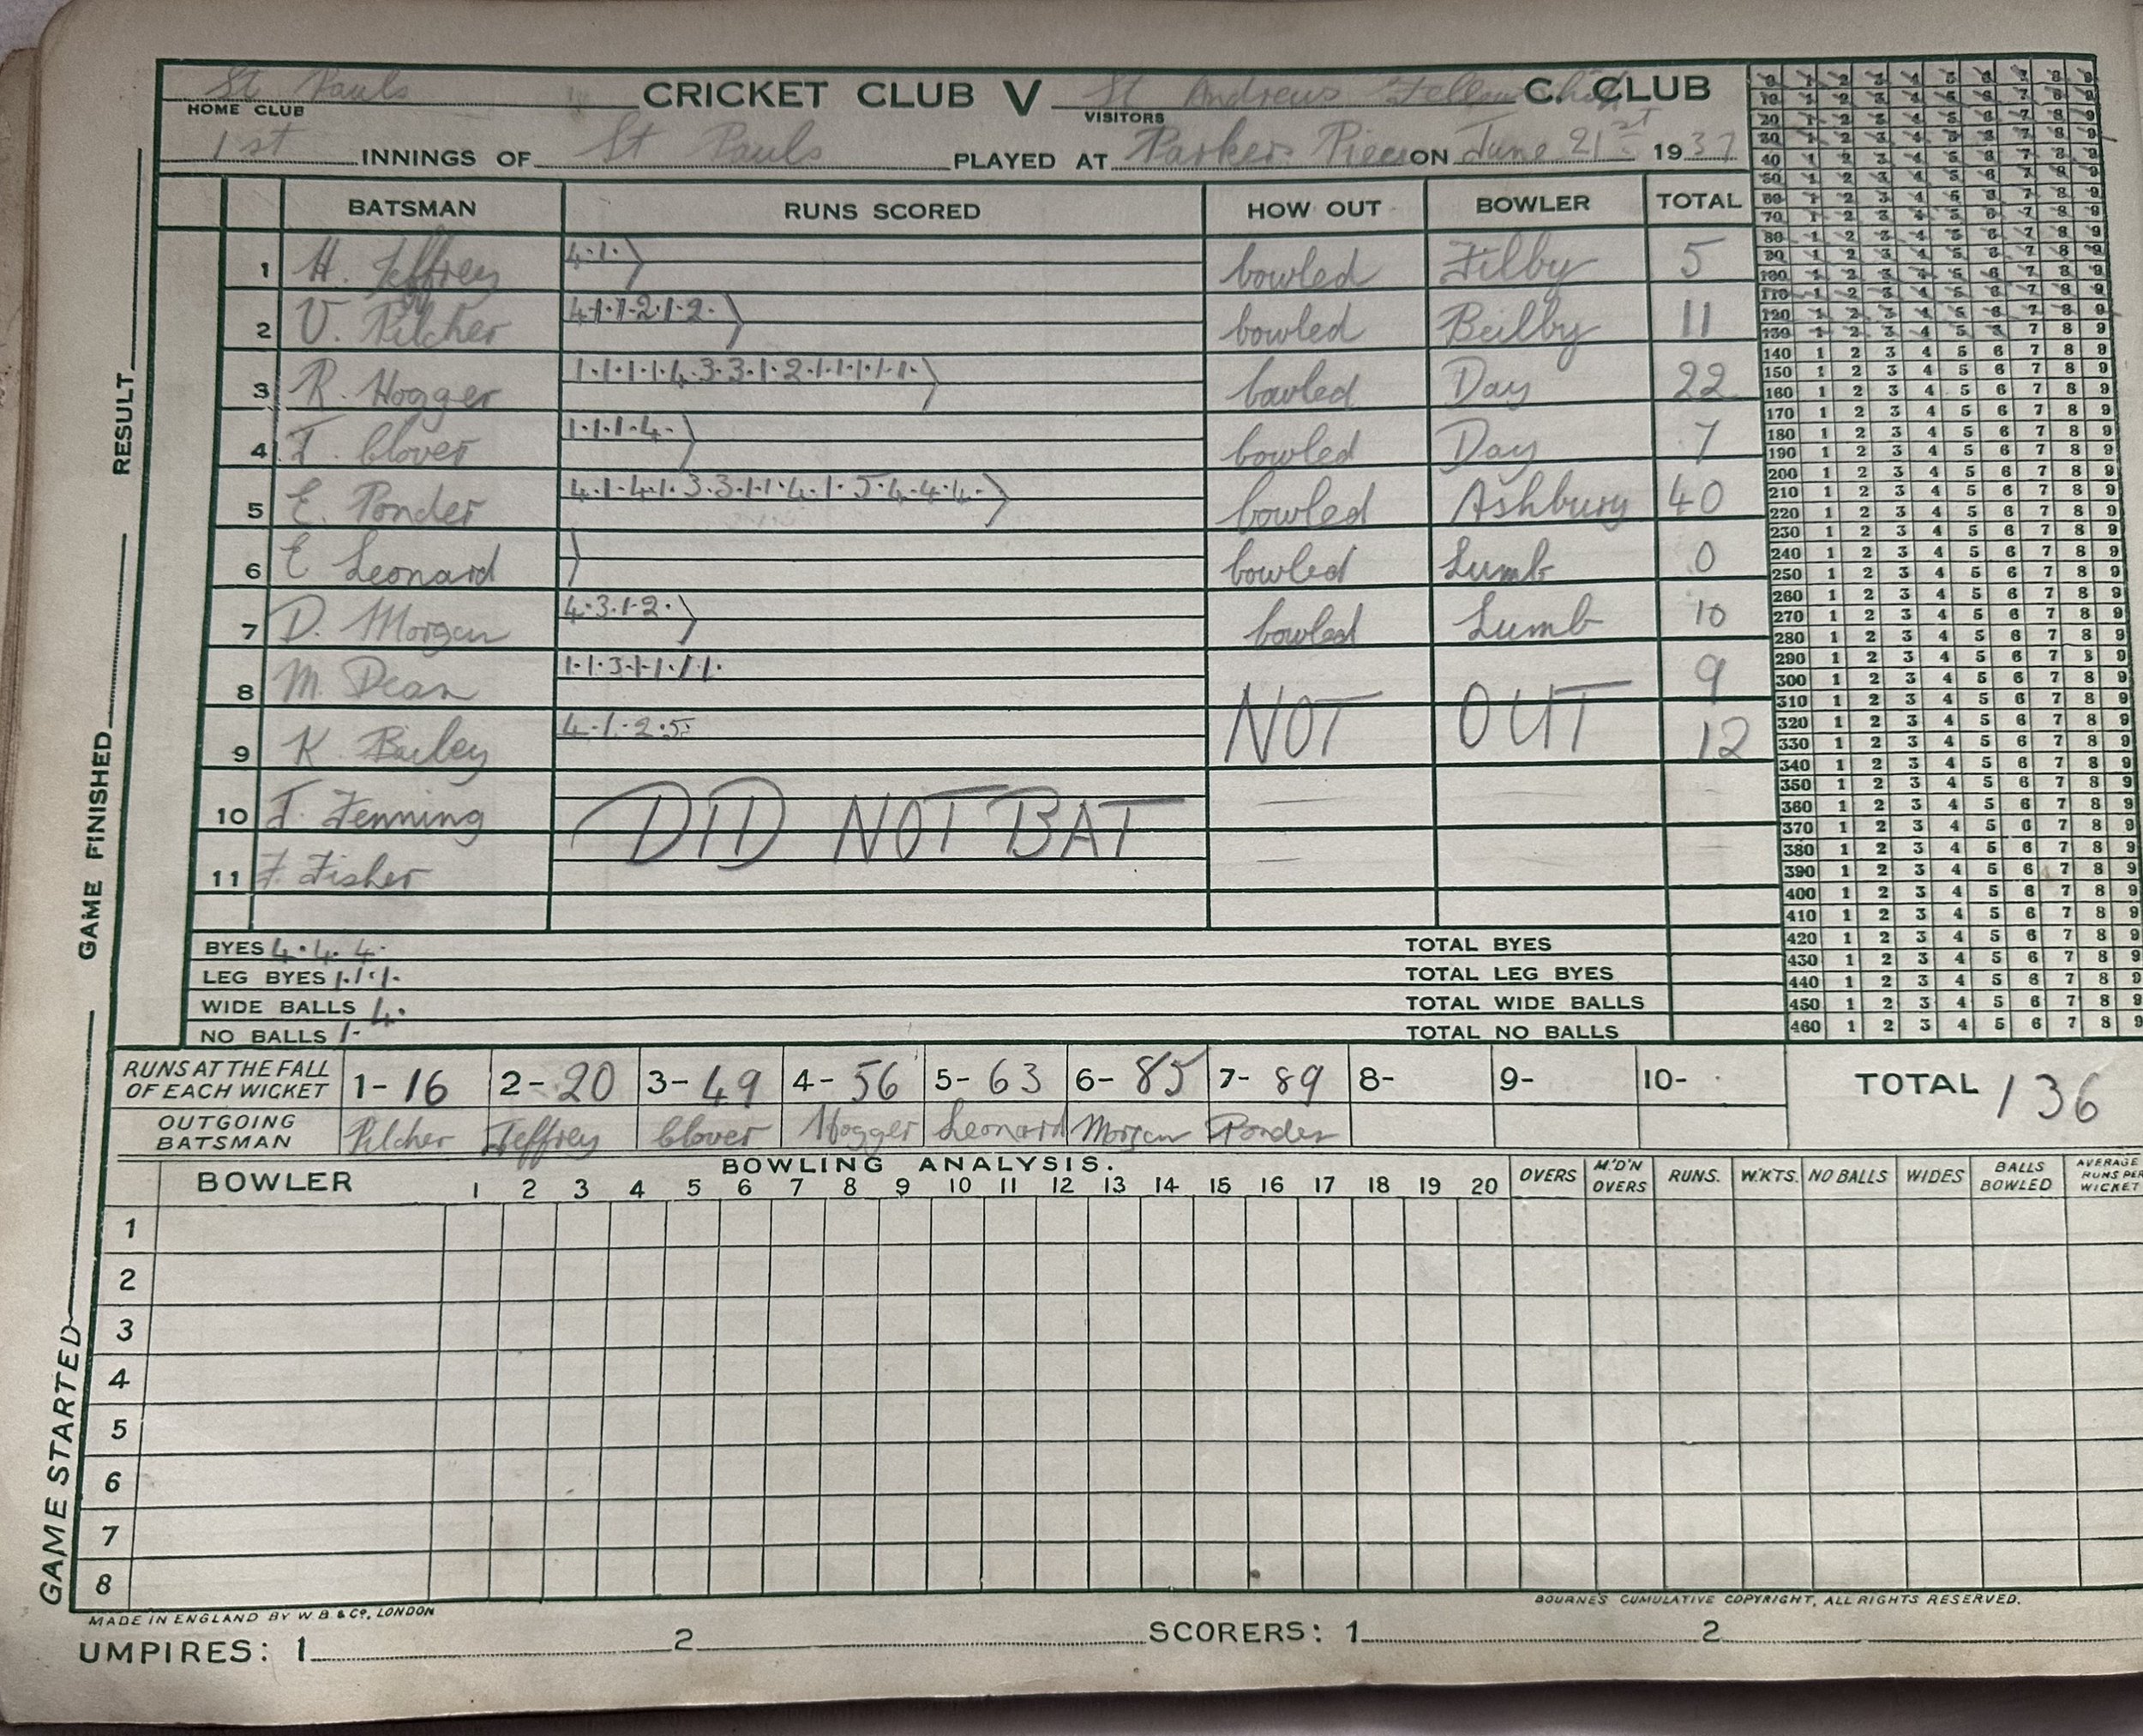 St Pauls CRICKET CLUB V St Andrews Fellowship C. CLUB
HOME CLUB VISITORS
1st INNINGS OF St Pauls PLAYED AT Parkers Piece ON June 21st 1937
BATSMAN RUNS SCORED HOW OUT BOWLER TOTAL
1 H. Jeffrey 4·1· bowled Filby 5
2 V. Pilcher 4·1·1·2·1·2· bowled Beilby 11
3 R. Hogger 1·1·1·1·4·3·3·1·2·1·1·1·1·1· bowled Day 22
4 T. Clover 1·1·1·4· bowled Day 7
5 E. Ponder 4·1·4·1·3·3·1·1·4·1·5·4·4·4· bowled Ashbury 40
6 E Leonard bowled Lumb 0
7 D. Morgan 4·3·1·2· bowled Lumb 10
8 M. Dean 1·1·3·1·1·1·1· 9
NOT OUT
9 K. Bailey 4·1·2·5 12
10 F. Fenning
DID NOT BAT
11 F. Fisher
BYES 4·4·4· TOTAL BYES
LEG BYES 1·1·1· TOTAL LEG BYES
WIDE BALLS 4· TOTAL WIDE BALLS
NO BALLS 1· TOTAL NO BALLS
0 1 2 3 4 5 6 7 8 9
10 1 2 3 4 5 6 7 8 9
20 1 2 3 4 5 6 7 8 9
30 1 2 3 4 5 6 7 8 9
40 1 2 3 4 5 6 7 8 9
50 1 2 3 4 5 6 7 8 9
60 1 2 3 4 5 6 7 8 9
70 1 2 3 4 5 6 7 8 9
80 1 2 3 4 5 6 7 8 9
90 1 2 3 4 5 6 7 8 9
100 1 2 3 4 5 6 7 8 9
110 1 2 3 4 5 6 7 8 9
120 1 2 3 4 5 6 7 8 9
130 1 2 3 4 5 6 7 8 9
140 1 2 3 4 5 6 7 8 9
150 1 2 3 4 5 6 7 8 9
160 1 2 3 4 5 6 7 8 9
170 1 2 3 4 5 6 7 8 9
180 1 2 3 4 5 6 7 8 9
190 1 2 3 4 5 6 7 8 9
200 1 2 3 4 5 6 7 8 9
210 1 2 3 4 5 6 7 8 9
220 1 2 3 4 5 6 7 8 9
230 1 2 3 4 5 6 7 8 9
240 1 2 3 4 5 6 7 8 9
250 1 2 3 4 5 6 7 8 9
260 1 2 3 4 5 6 7 8 9
270 1 2 3 4 5 6 7 8 9
280 1 2 3 4 5 6 7 8 9
290 1 2 3 4 5 6 7 8 9
300 1 2 3 4 5 6 7 8 9
310 1 2 3 4 5 6 7 8 9
320 1 2 3 4 5 6 7 8 9
330 1 2 3 4 5 6 7 8 9
340 1 2 3 4 5 6 7 8 9
350 1 2 3 4 5 6 7 8 9
360 1 2 3 4 5 6 7 8 9
370 1 2 3 4 5 6 7 8 9
380 1 2 3 4 5 6 7 8 9
390 1 2 3 4 5 6 7 8 9
400 1 2 3 4 5 6 7 8 9
410 1 2 3 4 5 6 7 8 9
420 1 2 3 4 5 6 7 8 9
430 1 2 3 4 5 6 7 8 9
440 1 2 3 4 5 6 7 8 9
450 1 2 3 4 5 6 7 8 9
460 1 2 3 4 5 6 7 8 9
RUNS AT THE FALL
OF EACH WICKET 1- 16 2- 20 3- 49 4- 56 5- 63 6- 85 7- 89 8- 9- 10- TOTAL 136
OUTGOING
BATSMAN Pilcher Jeffrey Clover Hogger Leonard Morgan Ponder
BOWLING ANALYSIS.
BOWLER 1 2 3 4 5 6 7 8 9 10 11 12 13 14 15 16 17 18 19 20 OVERS M'D'N OVERS RUNS. W'KTS. NO BALLS WIDES BALLS BOWLED AVERAGE RUNS PER WICKET
1
2
3
4
5
6
7
8
GAME STARTED GAME FINISHED RESULT
MADE IN ENGLAND BY W. B. & Co, LONDON
BOURNE'S CUMULATIVE COPYRIGHT, ALL RIGHTS RESERVED.
UMPIRES: 1 2 SCORERS: 1 2